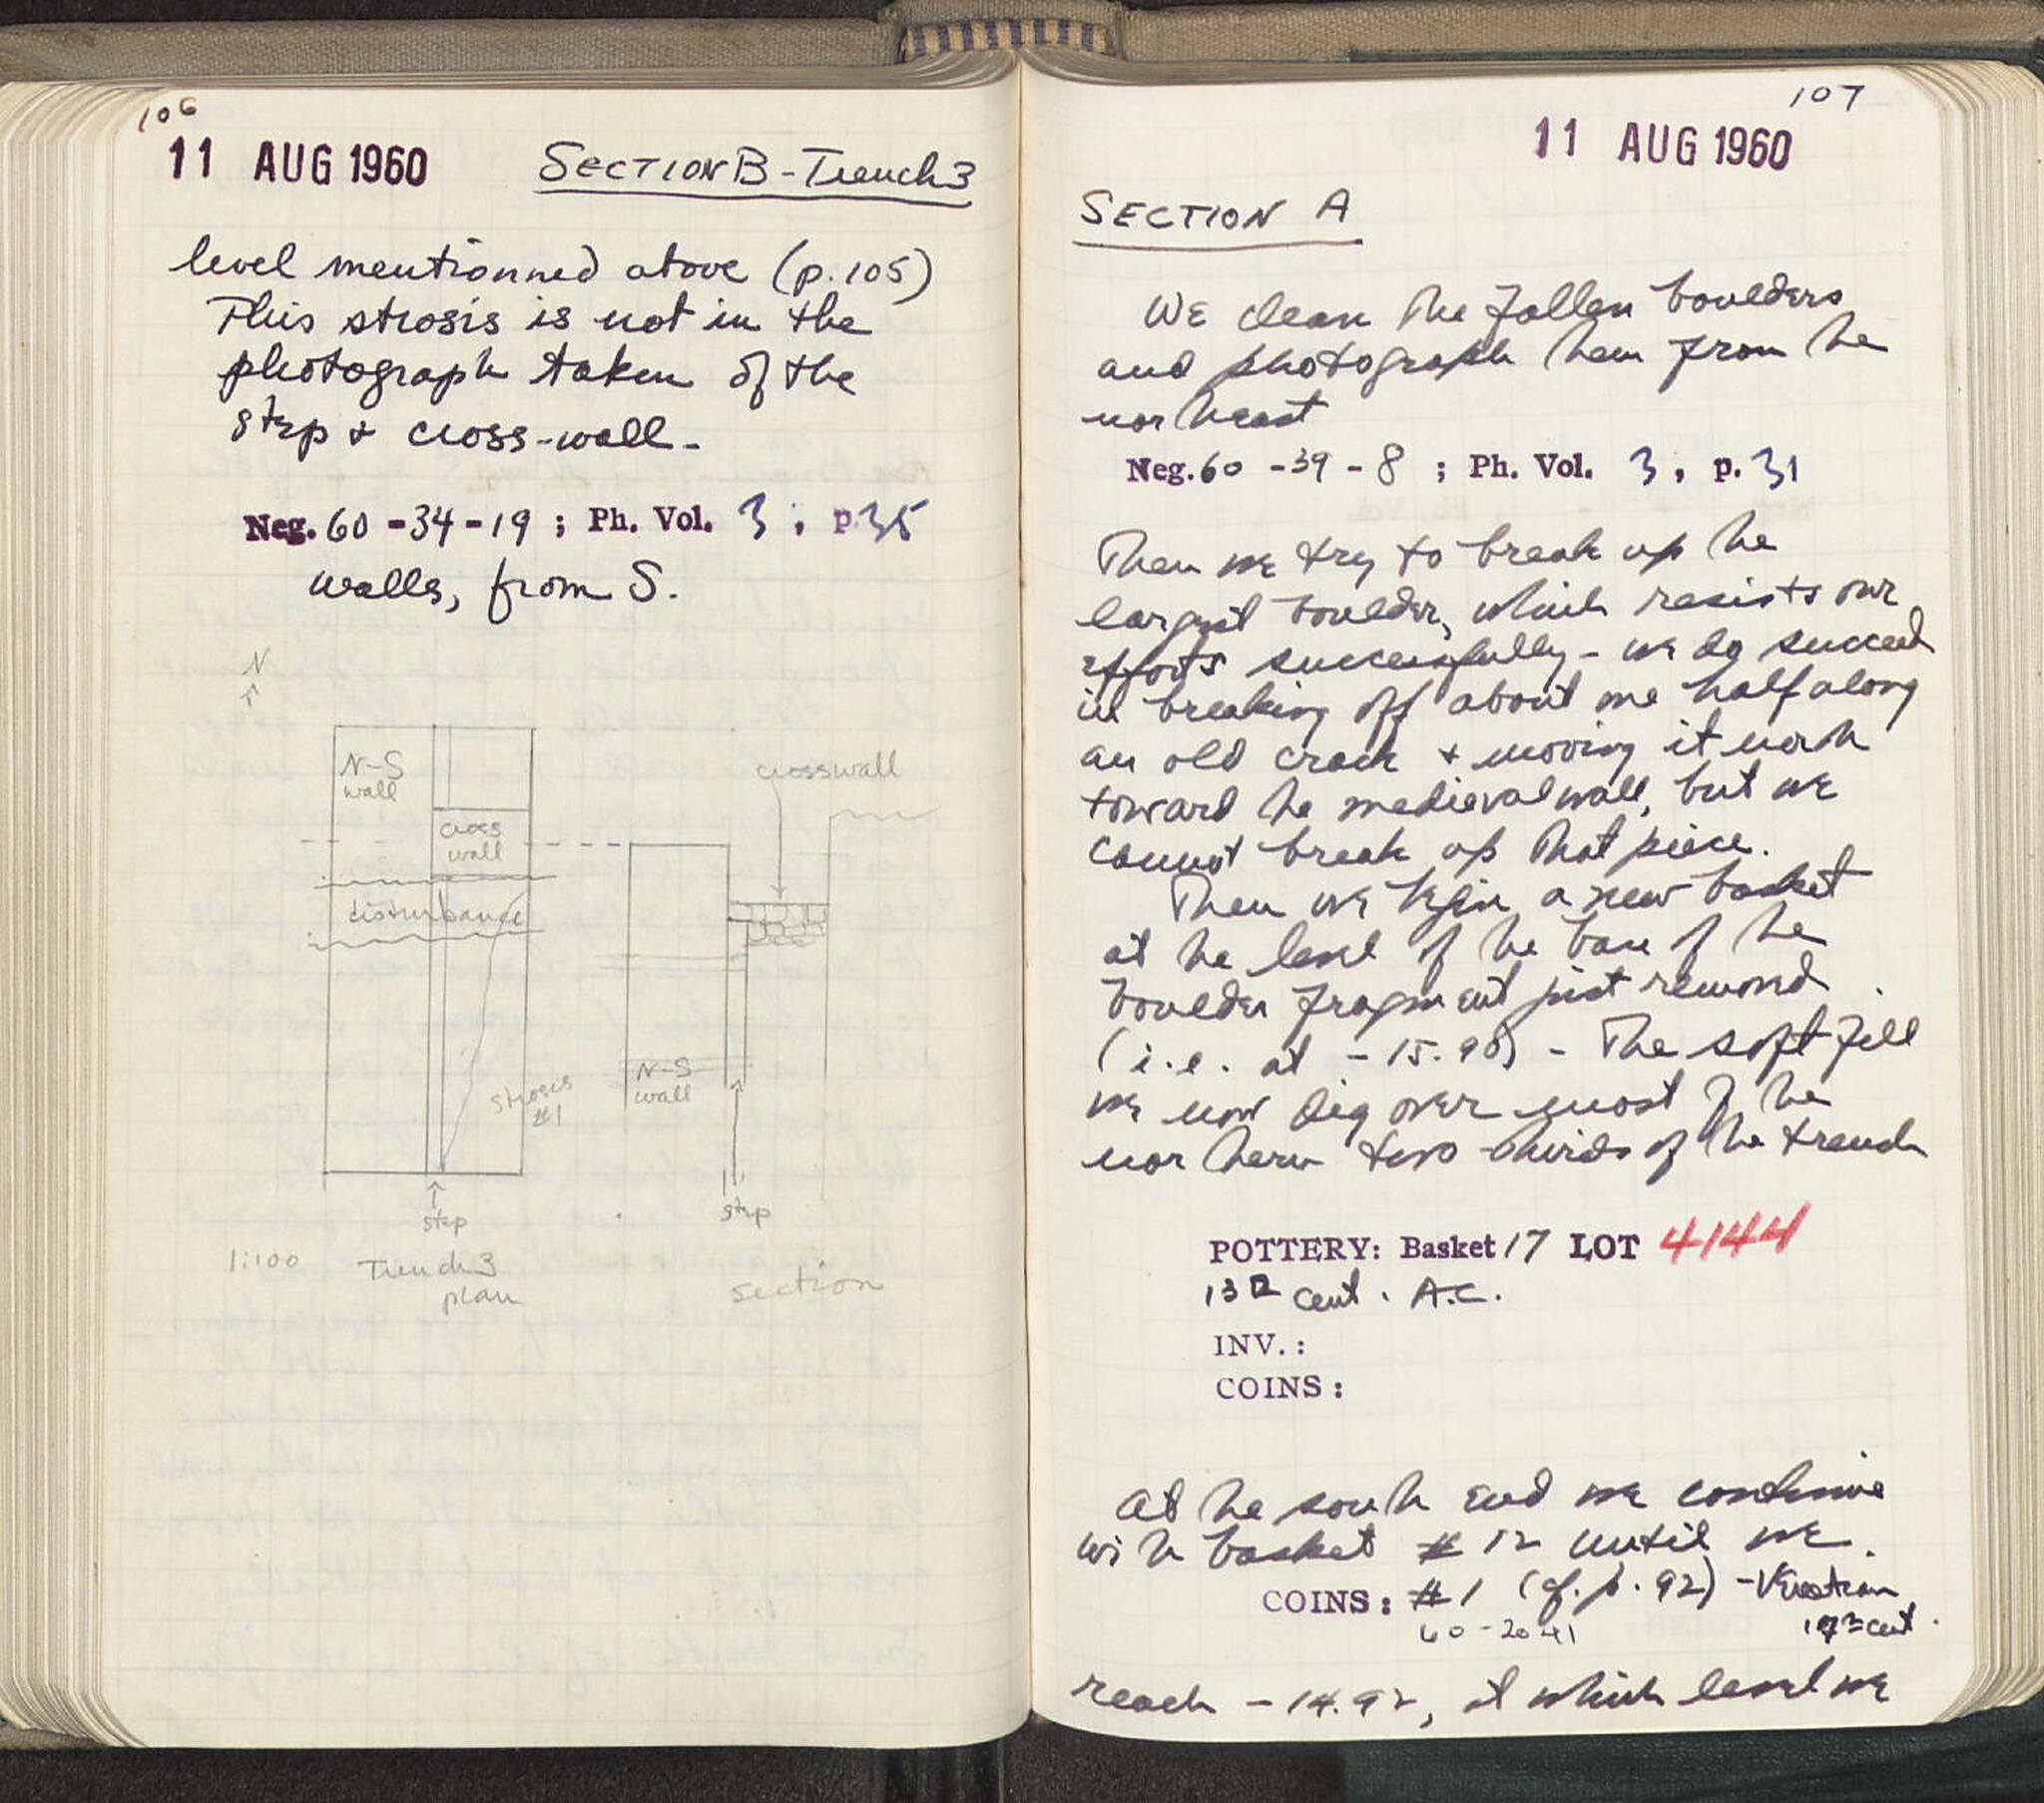 106
11 AUG 1960 SECTION B - Trench 3
level mentionned above (p. 105)
This strosis is not in the
photograph taken of the
step & cross-wall -
Neg. 60 - 34 - 19 ; Ph. Vol. 3 , p. 35
walls, from S.
N
N-S
wall
cross
wall
disturbance
strosis
#1
step
1:100
Trench 3
plan
crosswall
N-S
wall
step
section
107
11 AUG 1960
SECTION A
We clean the fallen boulders
and photograph hem from he
norheast
Neg. 60 - 39 - 8 ; Ph. Vol. 3 , p. 31
Then we try to break up he
largest boulder, which resists our
efforts successfully - we do succeed
in breaking off about one half along
an old crack & moving it norh
toward he medieval wall, but we
cannot break up that piece.
Then we begin a new basket
at he level of he base of he
boulder fragment just removed
(i.e. at - 15.90) - The soft fill
we now dig over most of he
norhern two thirds of the trench
POTTERY: Basket 17 LOT 4144
13th cent. A.C.
INV.:
COINS:
At he souh end we continue
wih basket # 12 until we
COINS: #1 (cf. p. 92) - Venetian
60 - 2041
reach - 14.92, at which level we